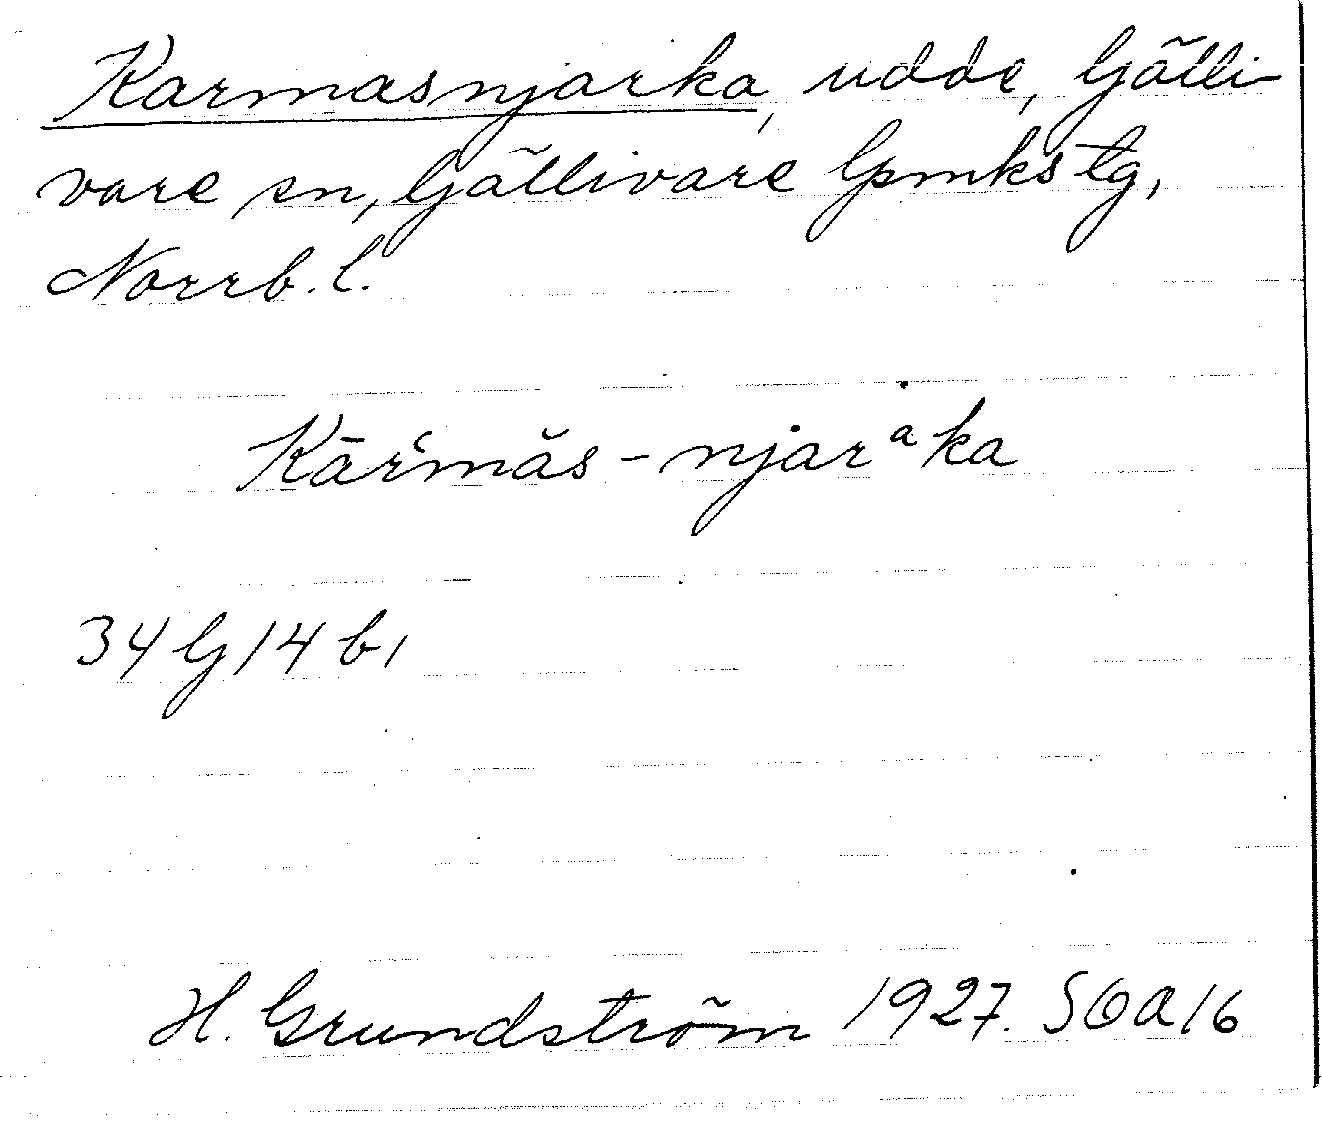 Karmasnjarka, udde, Gälli-
vare sn, Gällivare lpmks tg,
Norrb. l.
Kārʻmăs - njarᵃka
34 G 14 b,
H. Grundström 1927. SOA 16